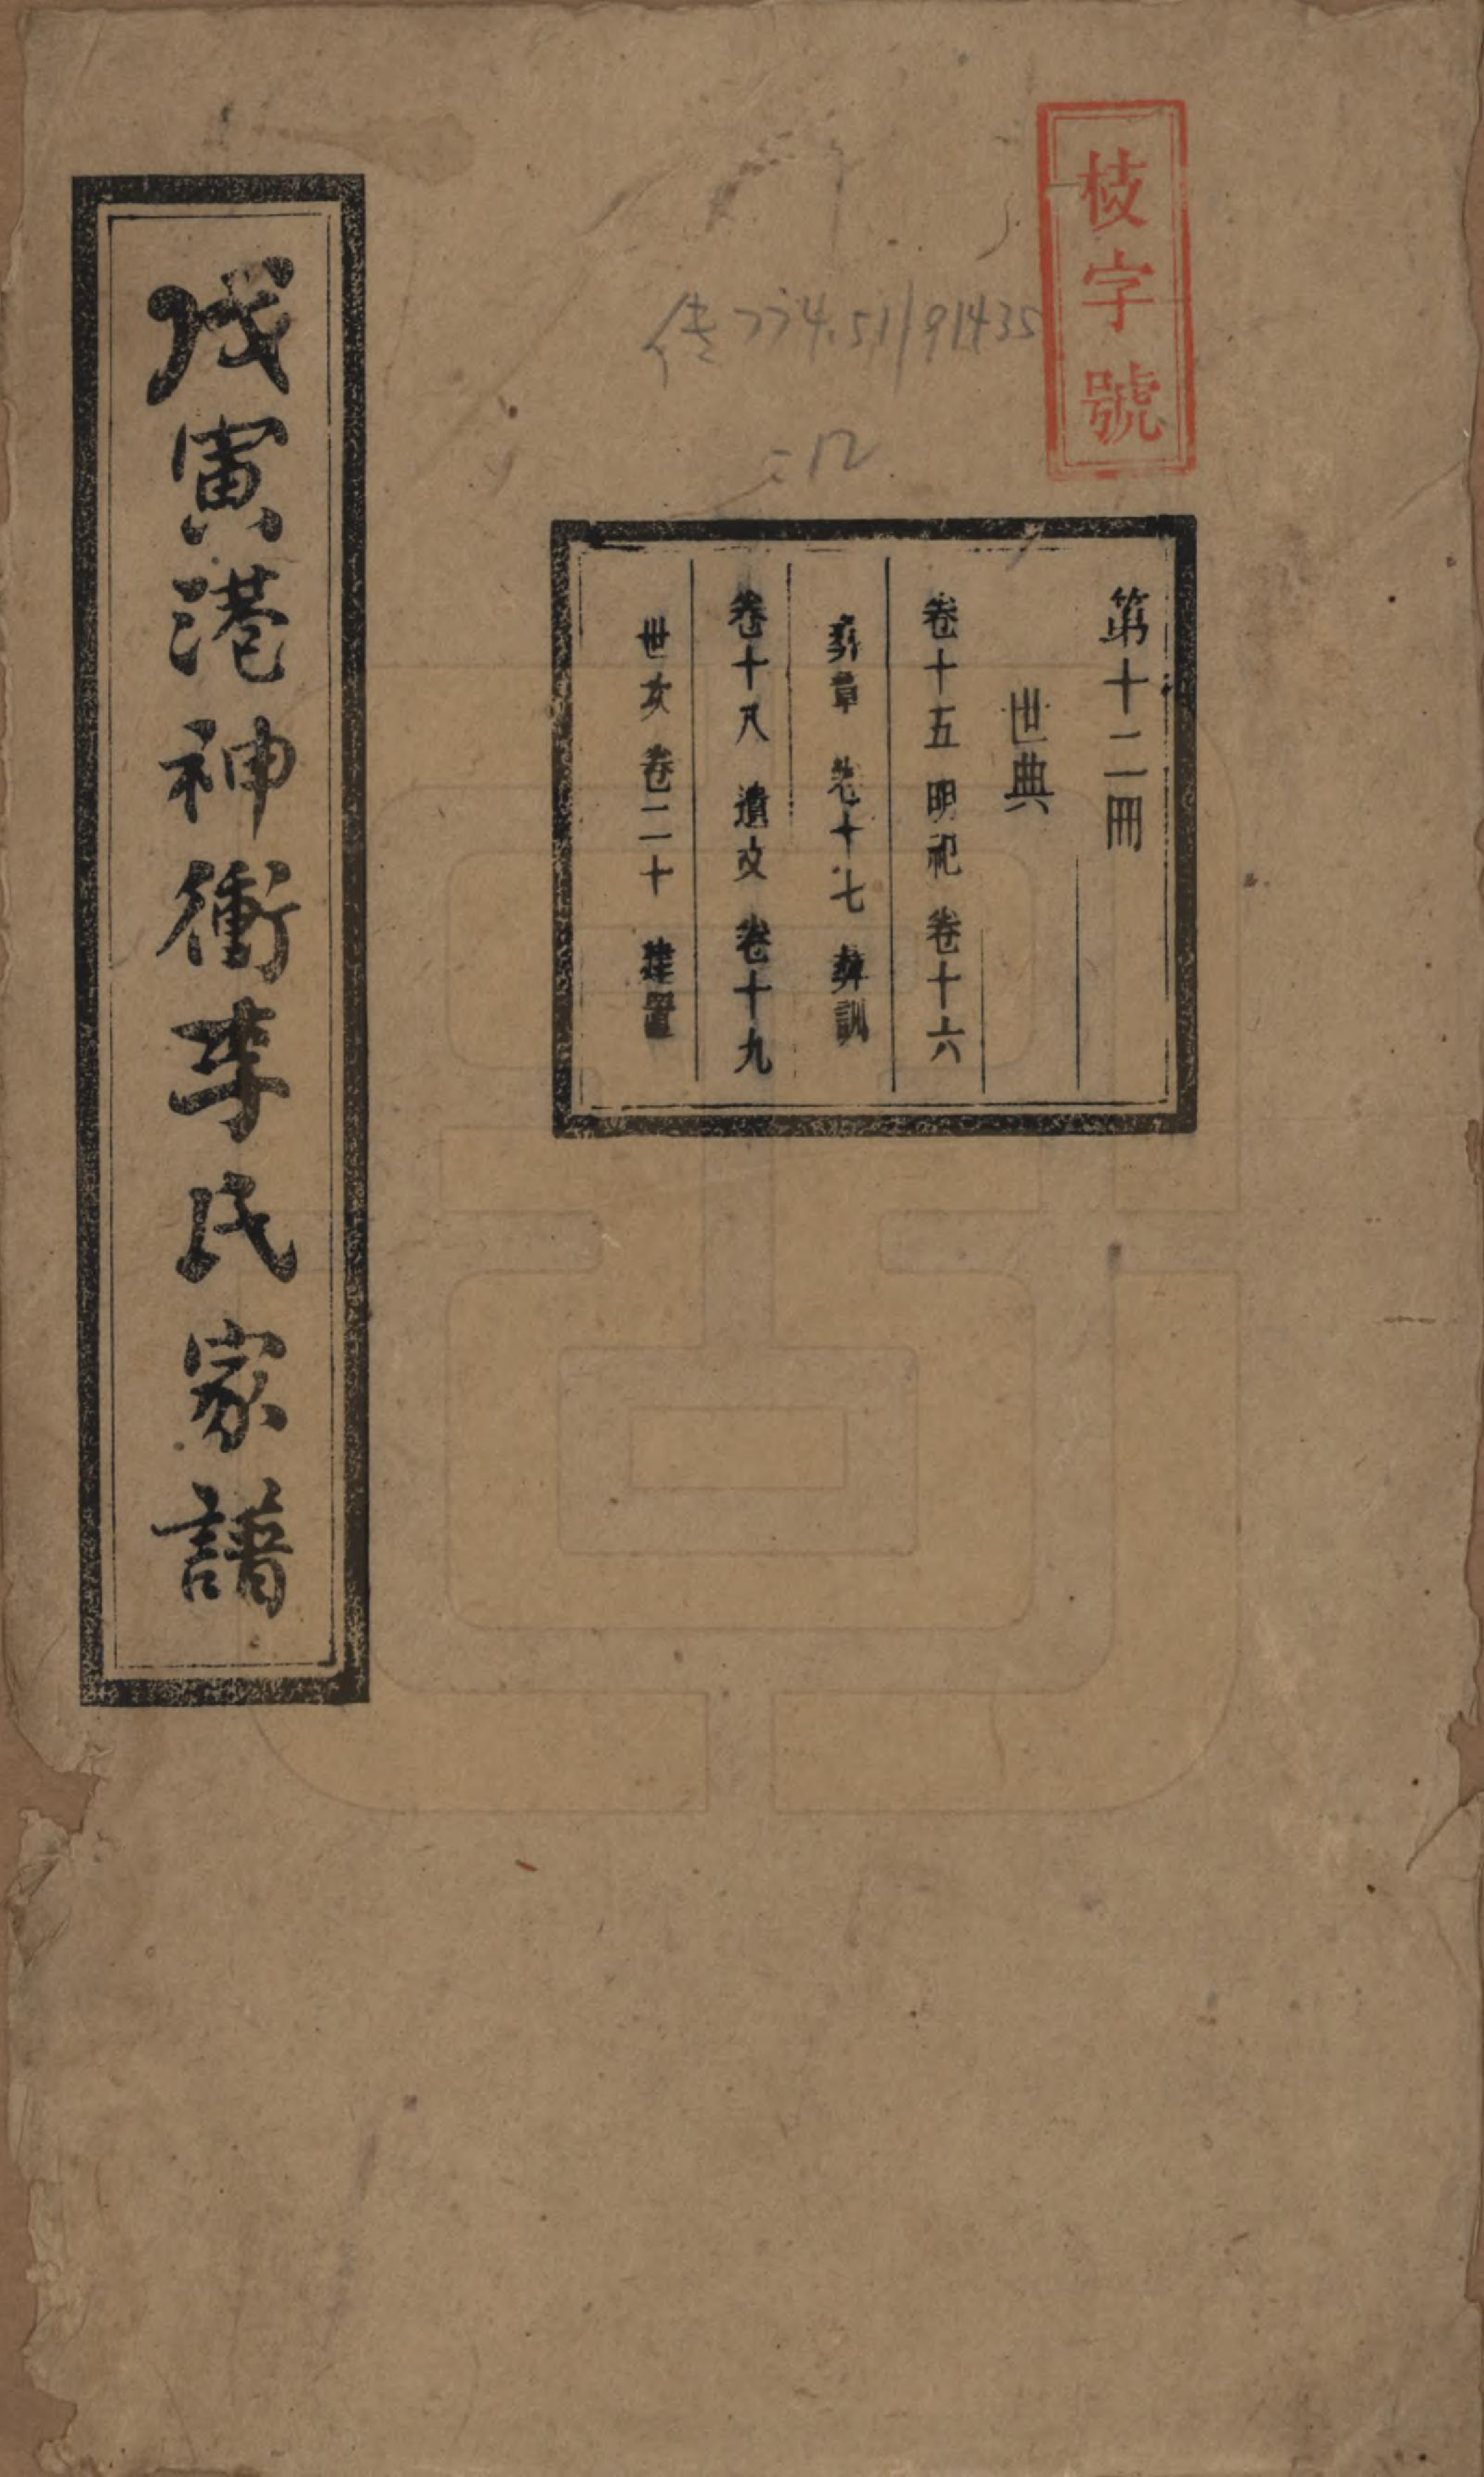 枝字號
传774.51/91435
:12
第十二冊
世典
卷十五 明祀 卷十六
彝章 卷十七 彝訓
卷十八 遺文 卷十九
世次 卷二十 建置
戊寅港神衝李氏家譜